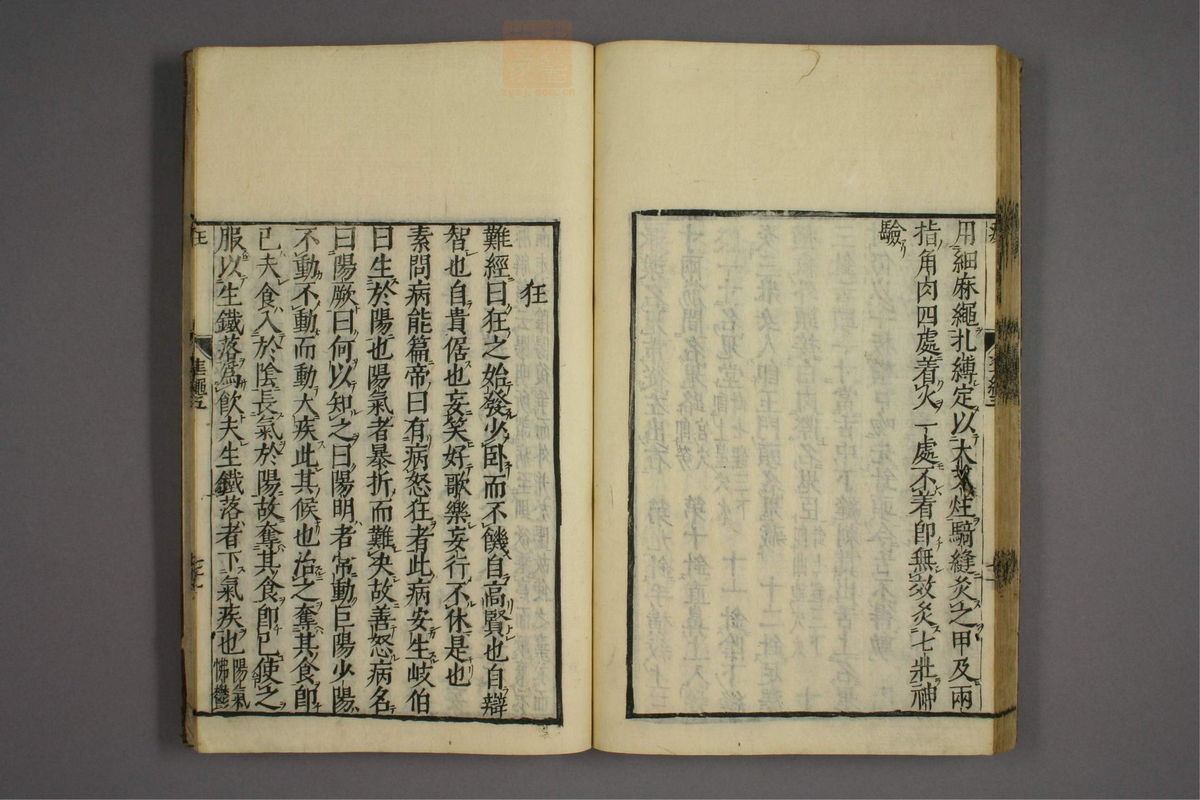 用細麻繩扎縛定以大艾炷騎縫灸之甲及兩
指角肉四處着火一處不着即無效灸七壯神
驗
狂
難經曰狂之始發少卧而不饑自高賢也自辯
智也自貴倨也妄笑好歌樂妄行不休是也
素問病能篇帝曰有病怒狂者此病安生岐伯
曰生於陽也陽氣者暴折而難决故善怒病名
曰陽厥曰何以知之曰陽明者常動巨陽少陽
不動不動而動大疾此其候也治之奪其食即
已夫食入於陰長氣於陽故奪其食即已使之
服以生鐵落爲飲夫生鐵落者下氣疾也陽氣
怫鬱